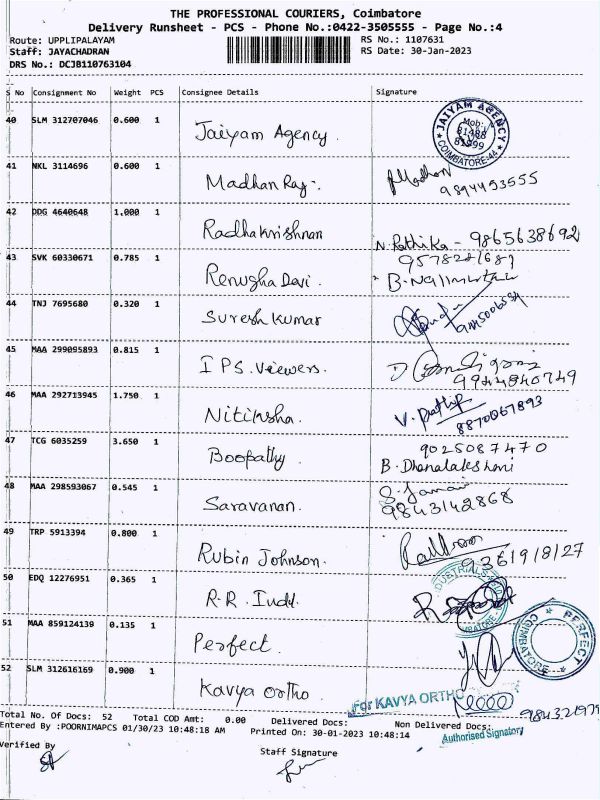 THE PROFESSIONAL COURIERS, Coimbatore
Delivery Runsheet - PCS - Phone No.:0422-3505555 - Page No.:4
Route: UPPLIPALAYAM RS No.: 1107631
Staff: JAYACHADRAN RS Date: 30-Jan-2023
DRS No.: DCJB110763104
S No Consignment No Weight PCS Consignee Details Signature
40 SLM 312707046 0.600 1 Jaiyam Agency. JAIYAM AGENCY Mob: COIMBATORE-44
41 NKL 3114696 0.600 1 Madhan Raj. Madhan 9894493555
42 DDG 4640648 1.000 1 Radhakrishnan N. Rathika - 9865638692
43 SVK 60330671 0.785 1 Renugha Devi.
44 TNJ 7695680 0.320 1 Suresh Kumar
45 MAA 299095893 0.815 1 IPS. Viewers. 9944840749
46 MAA 292713945 1.750 1 Nitiksha. V. Prathip 8870067893
47 TCG 6035259 3.650 1 Boopathy. 9025087470
B. Dhanalakshmi
48 MAA 298593067 0.545 1 Saravanan. 9843142868
49 TRP 5913394 0.800 1 Rubin Johnson. 9361918127
50 EDQ 12276951 0.365 1 R.R. Indd.
51 MAA 859124139 0.135 1 Perfect. PERFECT COIMBATORE
52 SLM 312616169 0.900 1 Kavya Ortho. For KAVYA ORTHO
Total No. Of Docs: 52 Total COD Amt: 0.00 Delivered Docs: Non Delivered Docs:
Entered By :POORNIMAPCS 01/30/23 10:48:18 AM Printed On: 30-01-2023 10:48:14 Authorised Signatory
Verified By Staff Signature